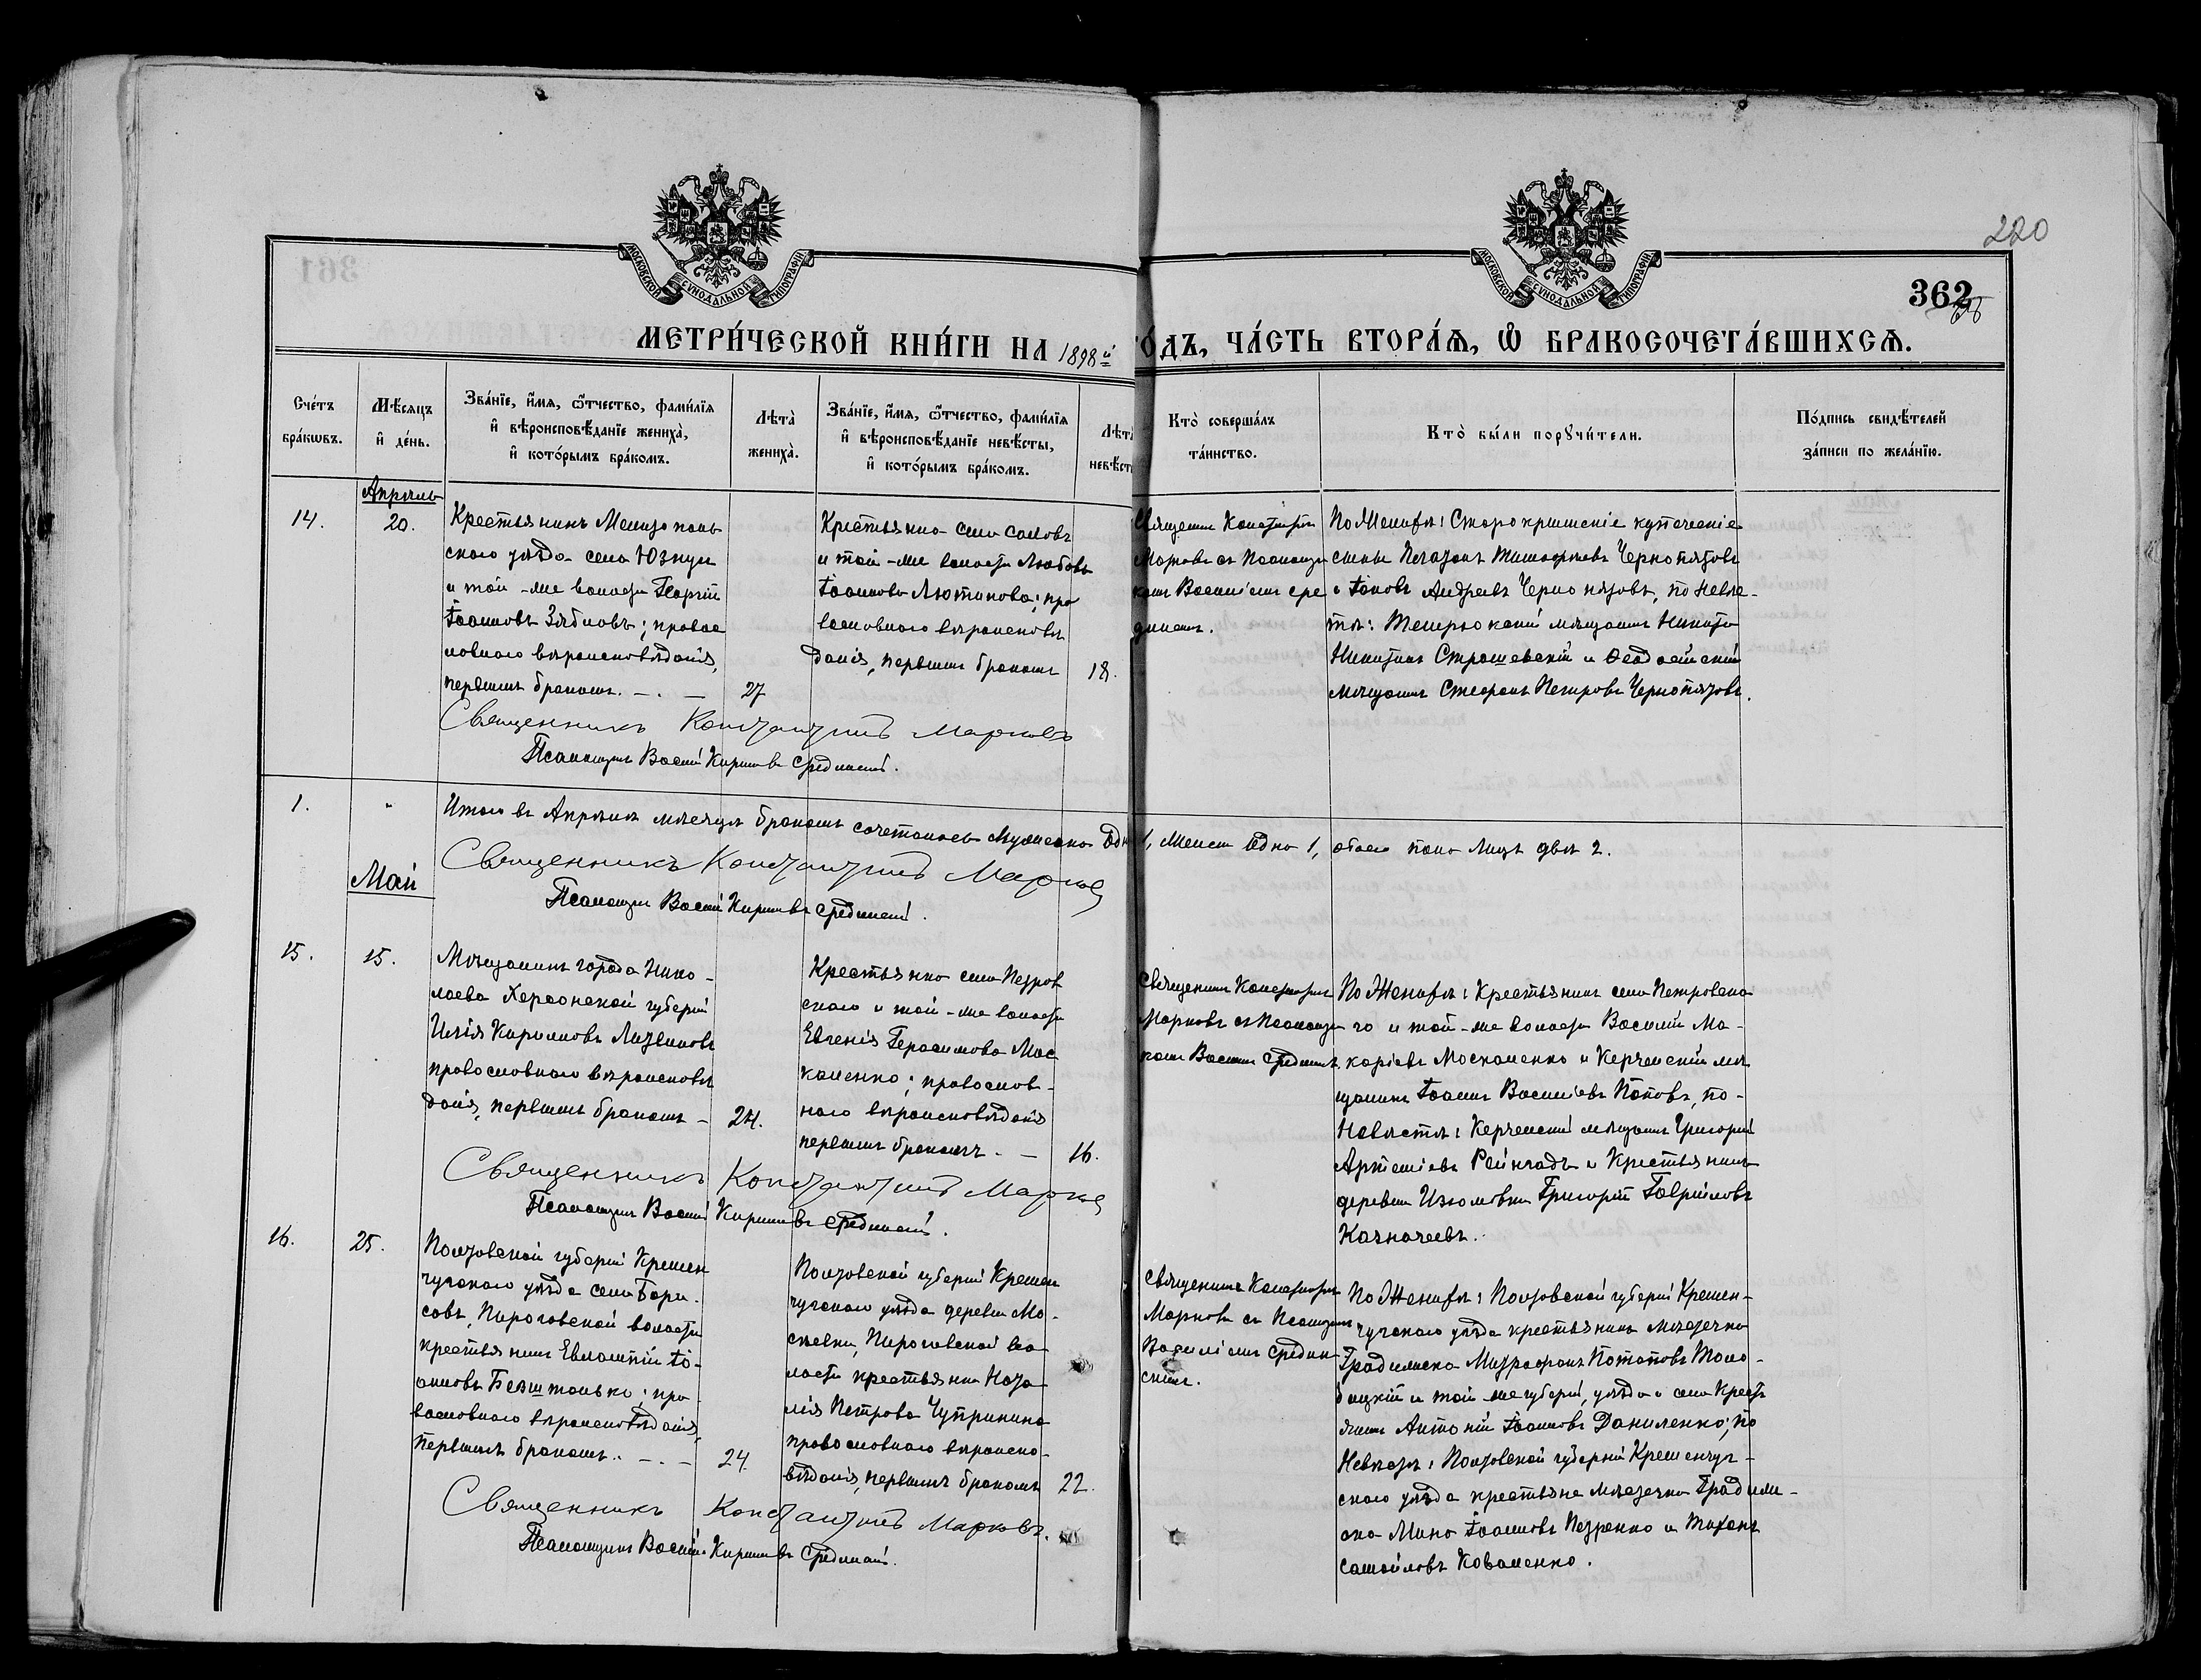 МОСКОВСКОЙ СѴНОДАЛЬНОЙ ТИПОГРАФІИ
МОСКОВСКОЙ СѴНОДАЛЬНОЙ ТИПОГРАФІИ
220
362
МЕТРИ́ЧЕСКОЙ КНИ́ГИ НА 1898 й
О́ДЪ, ЧА́СТЬ ВТОРА́Ѧ, Ѡ҆ БРАКОСОЧЕТА́ВШИХСѦ.
Сче́тъ бра́кѡвъ.
Мѣ́сѧцъ и҆ де́нь.
Зва́нїе, и҆́мѧ, ѻ҆́тчество, фами́лїѧ
и҆ вѣроисповѣ́данїе жениха̀,
и҆ кото́рымъ бра́комъ.
Лѣта̀ жениха̀.
Зва́нїе, и҆́мѧ, ѻ҆́тчество, фами́лїѧ
и҆ вѣроисповѣ́данїе невѣ́сты,
и҆ кото́рымъ бра́комъ.
Лѣта невѣст
Кто̀ соверша́лъ
та́инство.
Кто̀ бы́ли порꙋчи́тели.
По́дпись свидѣ́телей
за́писи по жела́нїю.
Апрѣль
14.
20.
Крестьянинъ Мелитополь
скаго уѣзда села Юзкуи
и той-же волости Георгій
Іоанновъ Зябловъ; правос
лавнаго вѣроисповѣданія,
первымъ бракомъ. -.-
27
Крестьянка села
и той-же волости Любовь
Іоаннова Лютикова; пра
вославнаго вѣроисповѣ
данія, первымъ бракомъ
18.
Священникъ Константинъ
Марковъ съ Псаломщи
комъ Василіемъ Сре
динскимъ.
По Женихѣ: Старокрымскіе купеческіе
сыны Тимофеевъ Чернопятовъ
и Іаковъ Андреевъ Чернопятовъ, по Невѣ-
стѣ: Темрюкскій мѣщанинъ Никита
Никитинъ Страшевскій и Ѳеодосійскій
мѣщанинъ Стефанъ Петровъ Чернопятовъ.
Священникъ Константинъ Марковъ
Псаломщикъ Василій Кириловъ Срединскій.
1.
"
Итого въ Апрѣлѣ мѣсяцѣ бракомъ сочеталось Мужеска Одн
1, Женска Одно 1, обоего пола лицъ двѣ 2.
Священникъ Константинъ Марковъ
Псаломщикъ Василій Кириловъ Срединскій.
Май
15.
15.
Мѣщанинъ города Нико-
лаева Херсонской губерніи
Илія Карповъ Литвиновъ
православнаго вѣроисповѣ
данія, первымъ бракомъ -
24.
Крестьянка села Петров
скаго и той-же волости
Евгенія Герасимова Мос
каленко; православ-
наго вѣроисповѣданія
первымъ бракомъ. -
16.
Священникъ Константинъ
Марковъ съ Псаломщи
комъ Василіемъ Срединск.
По Женихѣ: Крестьянинъ села Петровска
го и той-же волости Василій Ма-
каріевъ Москаленко и Керченскій мѣ
щанинъ Іоаннъ Василіевъ Поповъ, по-
Невѣстѣ: Керченскій мѣщанинъ Григорій
Артеміевъ Рейнгадъ и Крестьянинъ
деревни Изюмовки Григорій Гавріиловъ
Казначеевъ.
Священникъ Константинъ Марковъ
Псаломщикъ Василій Кириловъ Срединскій.
16.
25.
Полтовской губерніи Кремен
чугскаго уѣзда села Бори-
совъ, Пироговской волости
крестьянинъ Евлампій Іо-
анновъ Безштанько; пра-
вославнаго вѣроисповѣданія,
первымъ бракомъ. -.-
24.
Полтовской губерніи Кремен
чугскаго уѣзда деревни Мо-
сковки, Пироговской во
лости крестьянка Ната
лія Петрова Чуприкина
православнаго вѣроиспо-
вѣданія, первымъ бракомъ
22.
Священникъ Константинъ
Марковъ съ Псаломщикомъ
Василіемъ Средин
скимъ.
По Женихѣ: Полтовской губерніи Кремен-
чугскаго уѣзда крестьянинъ мѣстечка
Градижска Митрофанъ Потаповъ Толо-
бицкій и той-же губерніи, уѣзда и села Крест
янинъ Антоній Іоанновъ Даниленко; по
Невѣстѣ: Полтовской губерніи Кременчуг-
скаго уѣзда крестьяне мѣстечка Градиж-
ска Мина Іоанновъ Петренко и Тихонъ
Самойловъ Коваленко.
Священникъ Константинъ Марковъ.
Псаломщикъ Василій Кириловъ Срединскій.